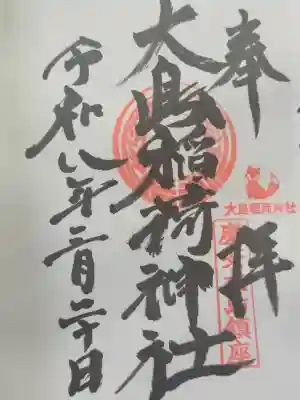 奉拝
大島稲荷神社
大島稲荷神社
慶安二年鎮座
令和八年二月二十日